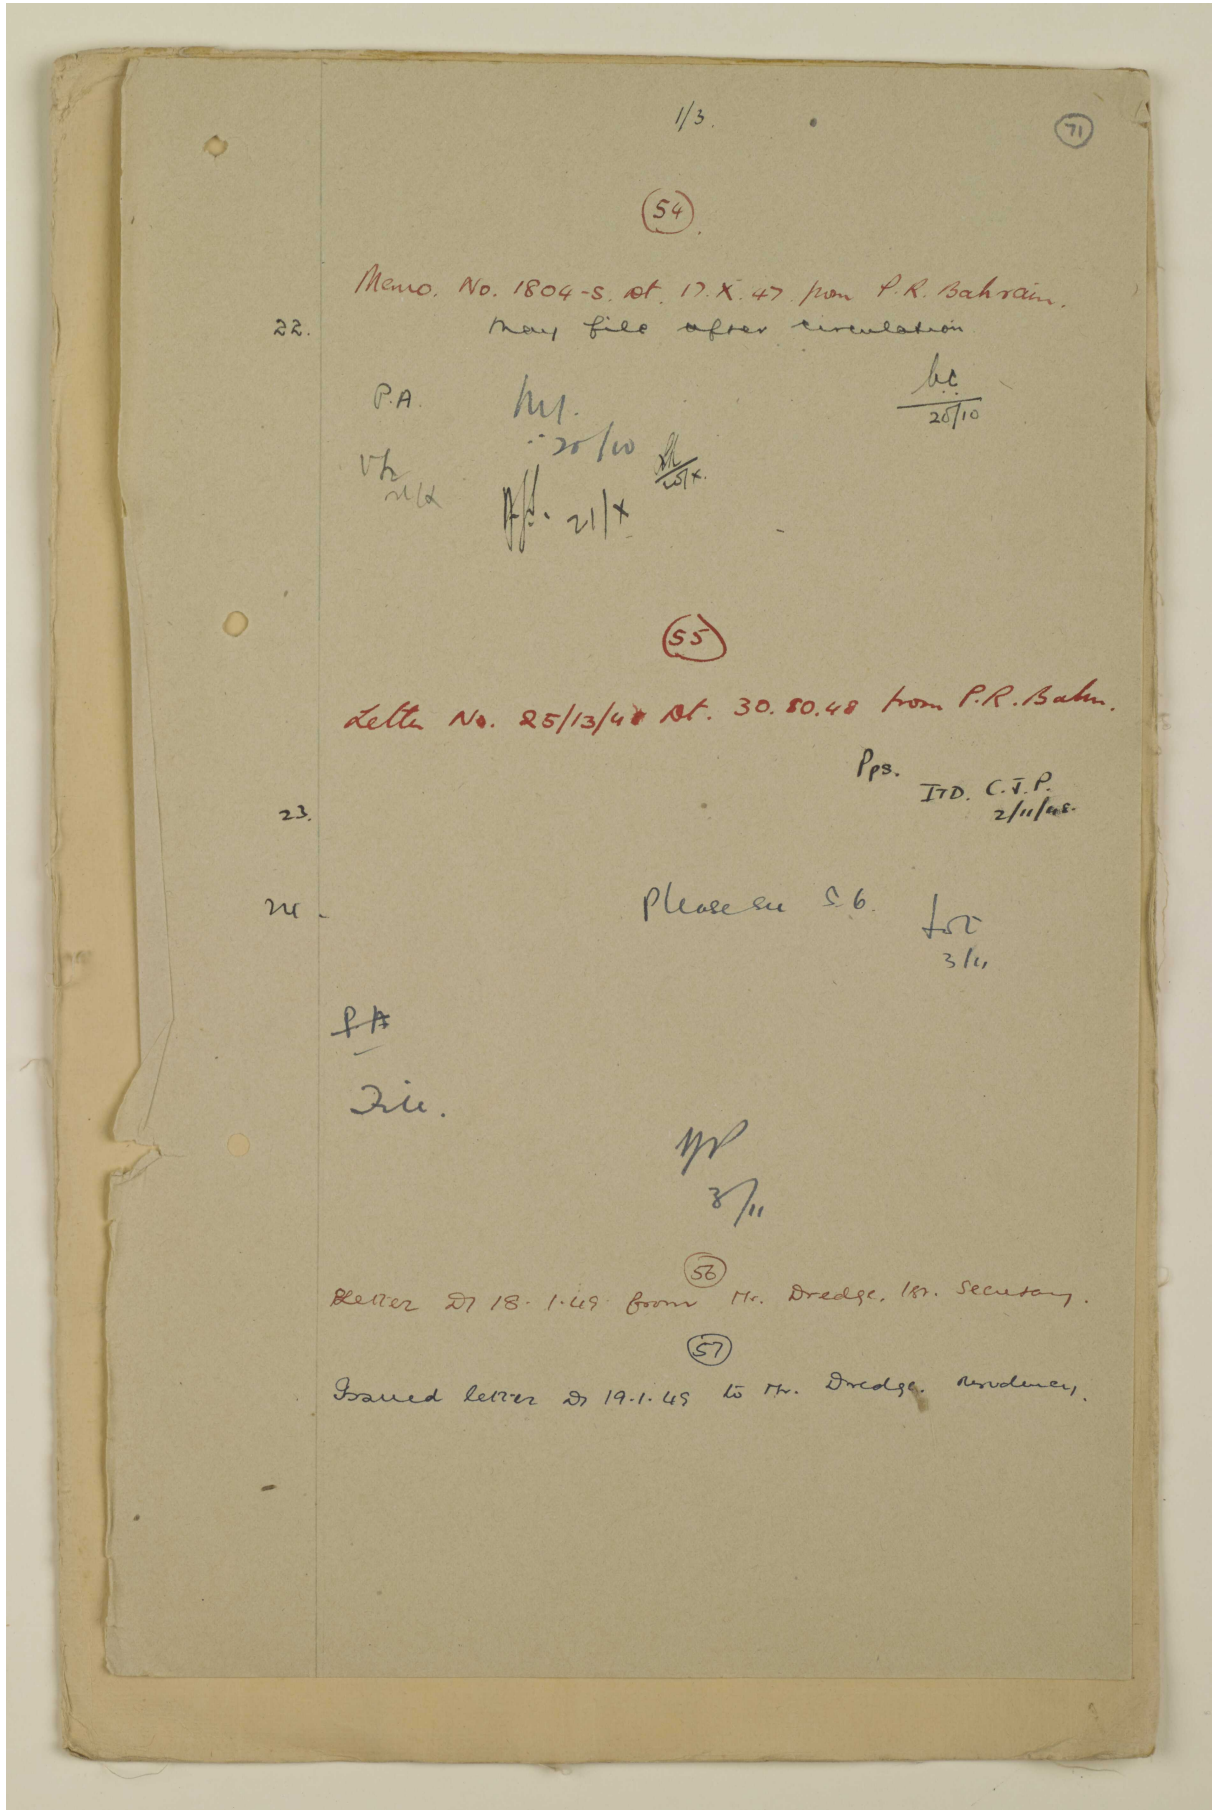 1/3.
71
54
Memo. No. 1804-S. dt. 17.X.47 from P.R. Bahrain.
22. May file after circulation
P.A.
20/10
20/10
21/X
55
Letter No. 25/13/48 Dt. 30.10.48 from P.R. Bahn.
Pps.
ITD. C.J.P.
2/11/48.
23.
24. Please see S.6.
3/11
P A
File.
3/11
56
Letter Dt 18.1.49 from Mr. Dredge. 1st. Secretary.
57
Issued letter Dt 19.1.49 to Mr. Dredge. Residency.